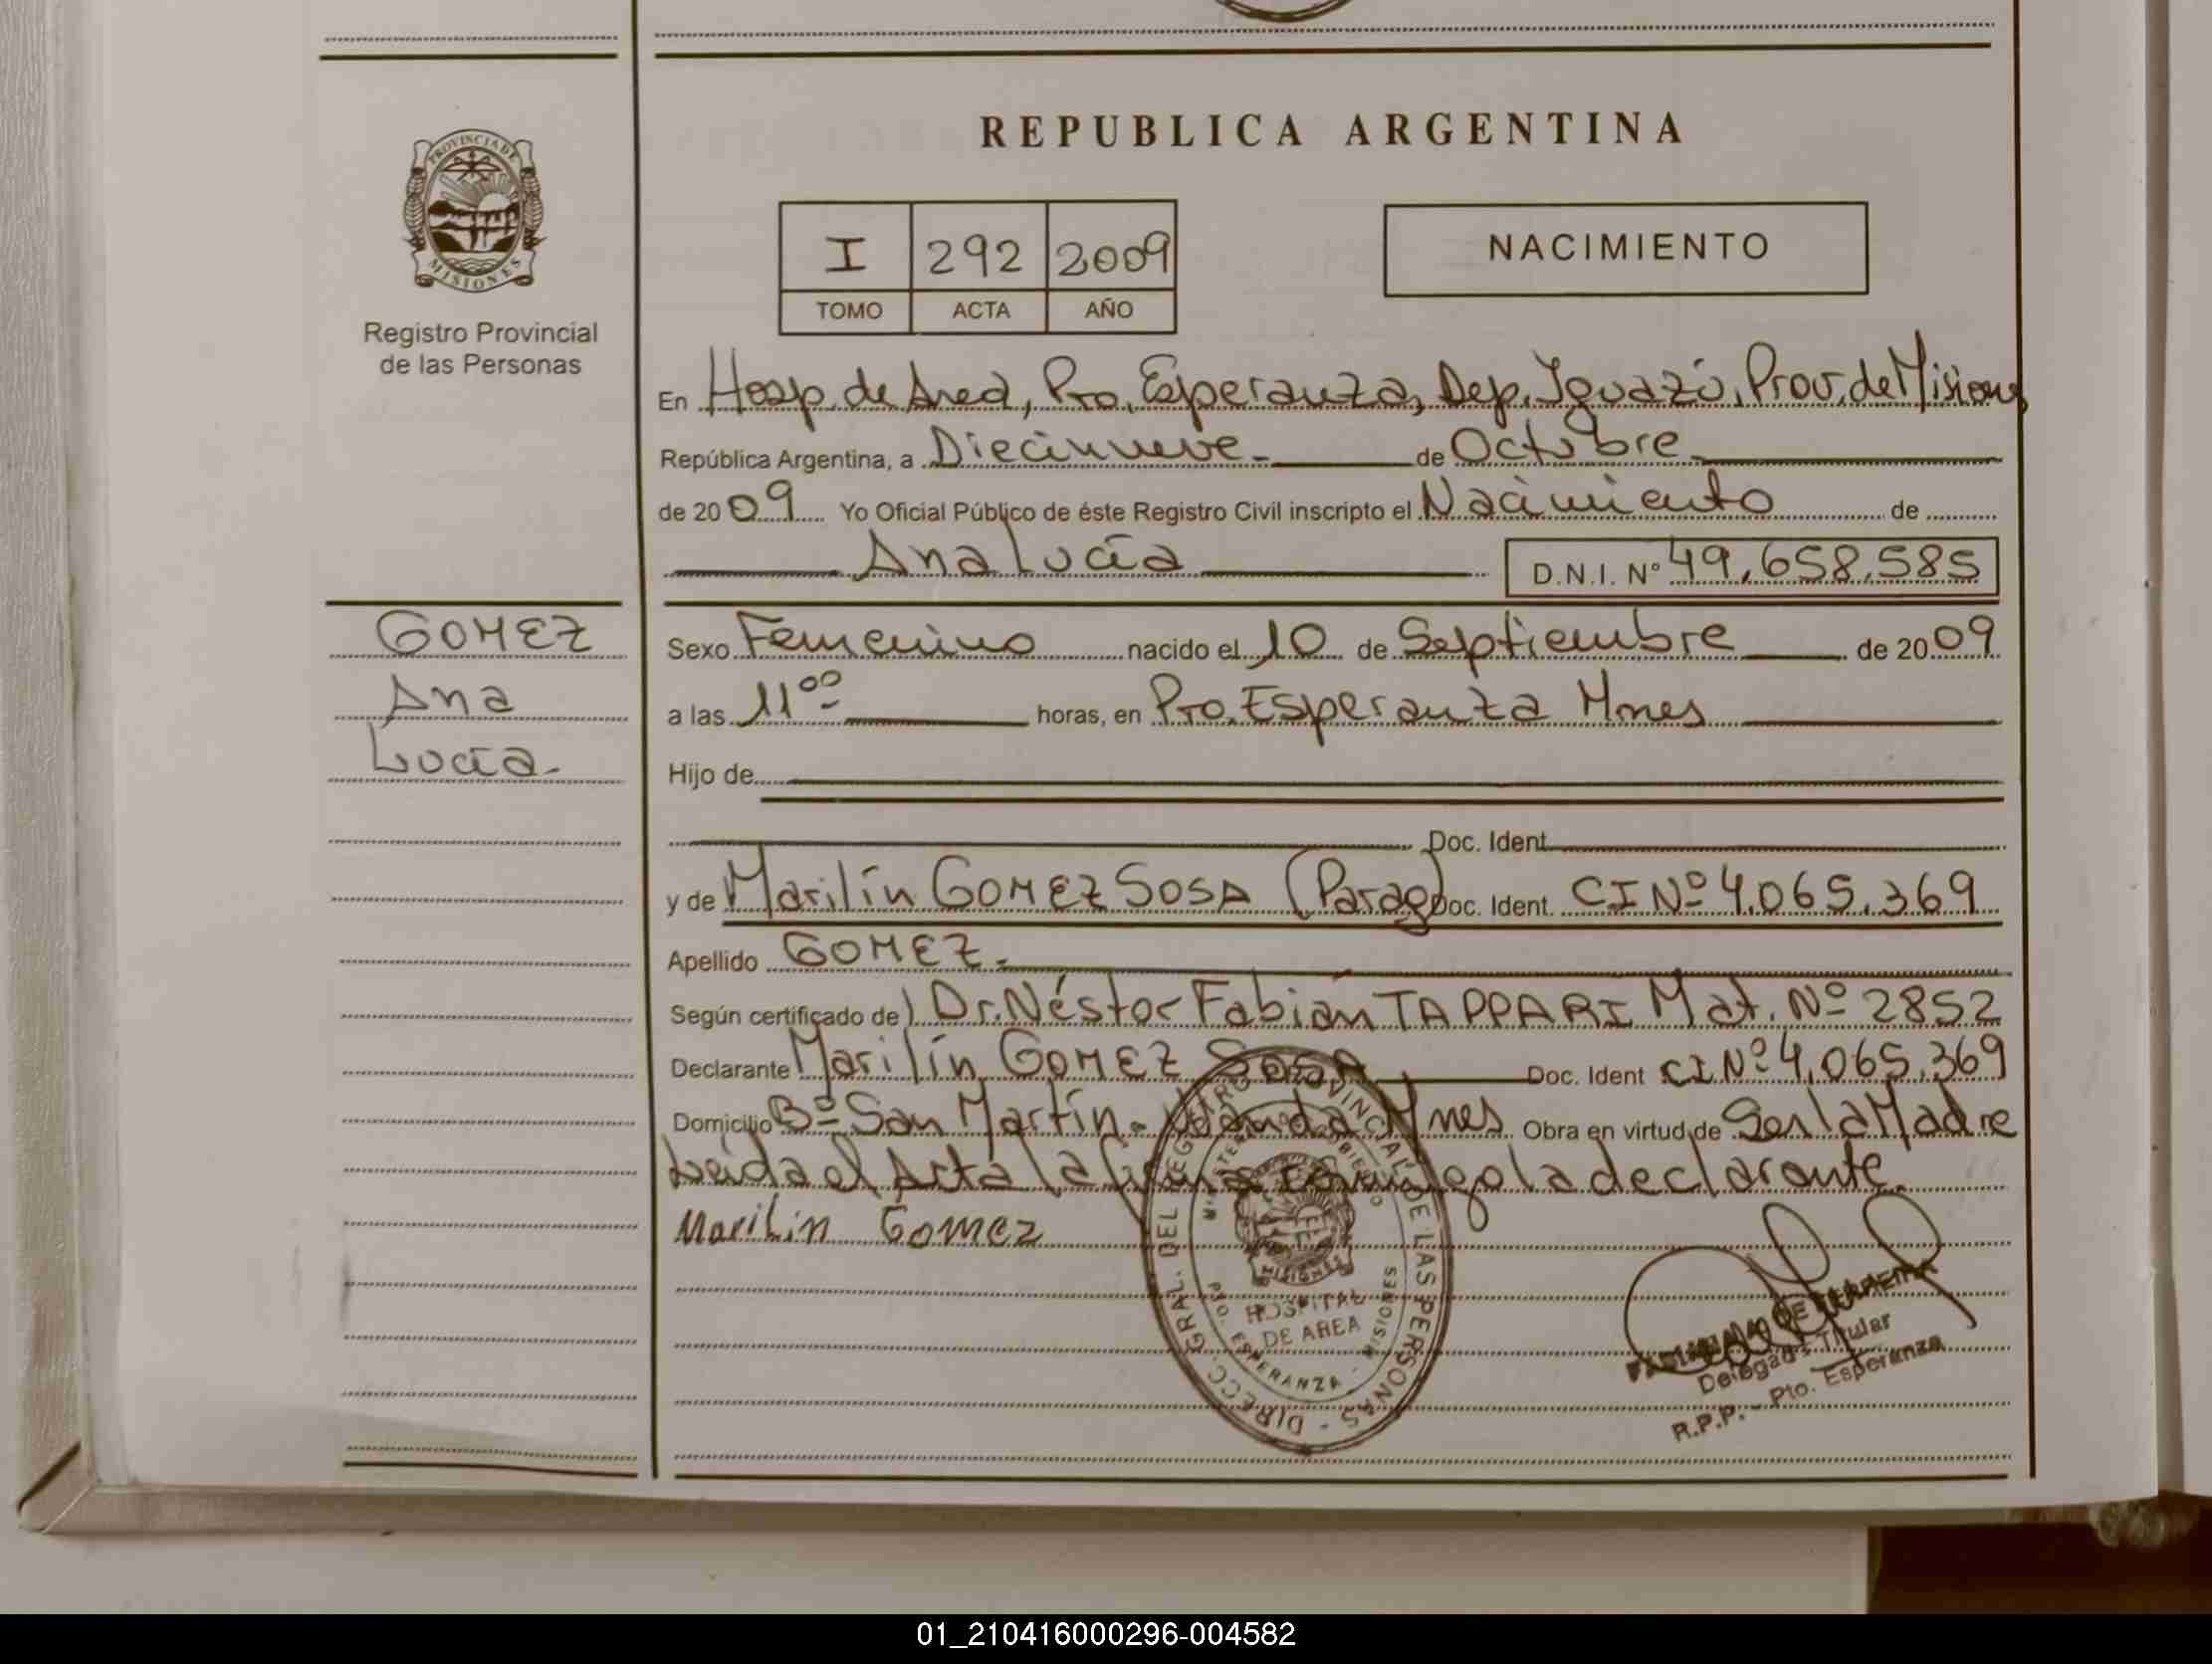 REPUBLICA ARGENTINA
PROVINCIA DE
MISIONES
Registro Provincial
de las Personas
I 292 2009
TOMO ACTA AÑO
NACIMIENTO
En Hosp. de Area, Pto. Esperanza, Dep. Iguazú, Prov. de Misiones
República Argentina, a Diecinueve de Octubre
de 2009 Yo Oficial Público de éste Registro Civil inscripto el Nacimiento de
Ana Lucía D.N.I. Nº 49.658.585
GOMEZ
Ana
Lucía
Sexo Femenino nacido el 10 de Septiembre de 2009
a las 11⁰⁰ horas, en Pto. Esperanza Mnes
Hijo de
Doc. Ident.
y de Marilín GOMEZ SOSA (Parag) Doc. Ident. CI Nº 4.065.369
Apellido GOMEZ.
Según certificado de Dr. Néstor Fabián TAPPARI Mat. Nº 2852
Declarante Marilín GOMEZ SOSA Doc. Ident CI Nº 4.065.369
Domicilio Bº San Martín. Wanda Mnes Obra en virtud de Ser la Madre
Leida el Acta la firma conmigo la declarante.
Marilin Gomez
DIRECC. GRAL. DEL REGISTRO PROVINCIAL DE LAS PERSONAS
MISIONES
HOSPITAL
DE AREA
PTO. ESPERANZA - MISIONES
Delegada Titular
R.P.P. - Pto. Esperanza
01_210416000296-004582